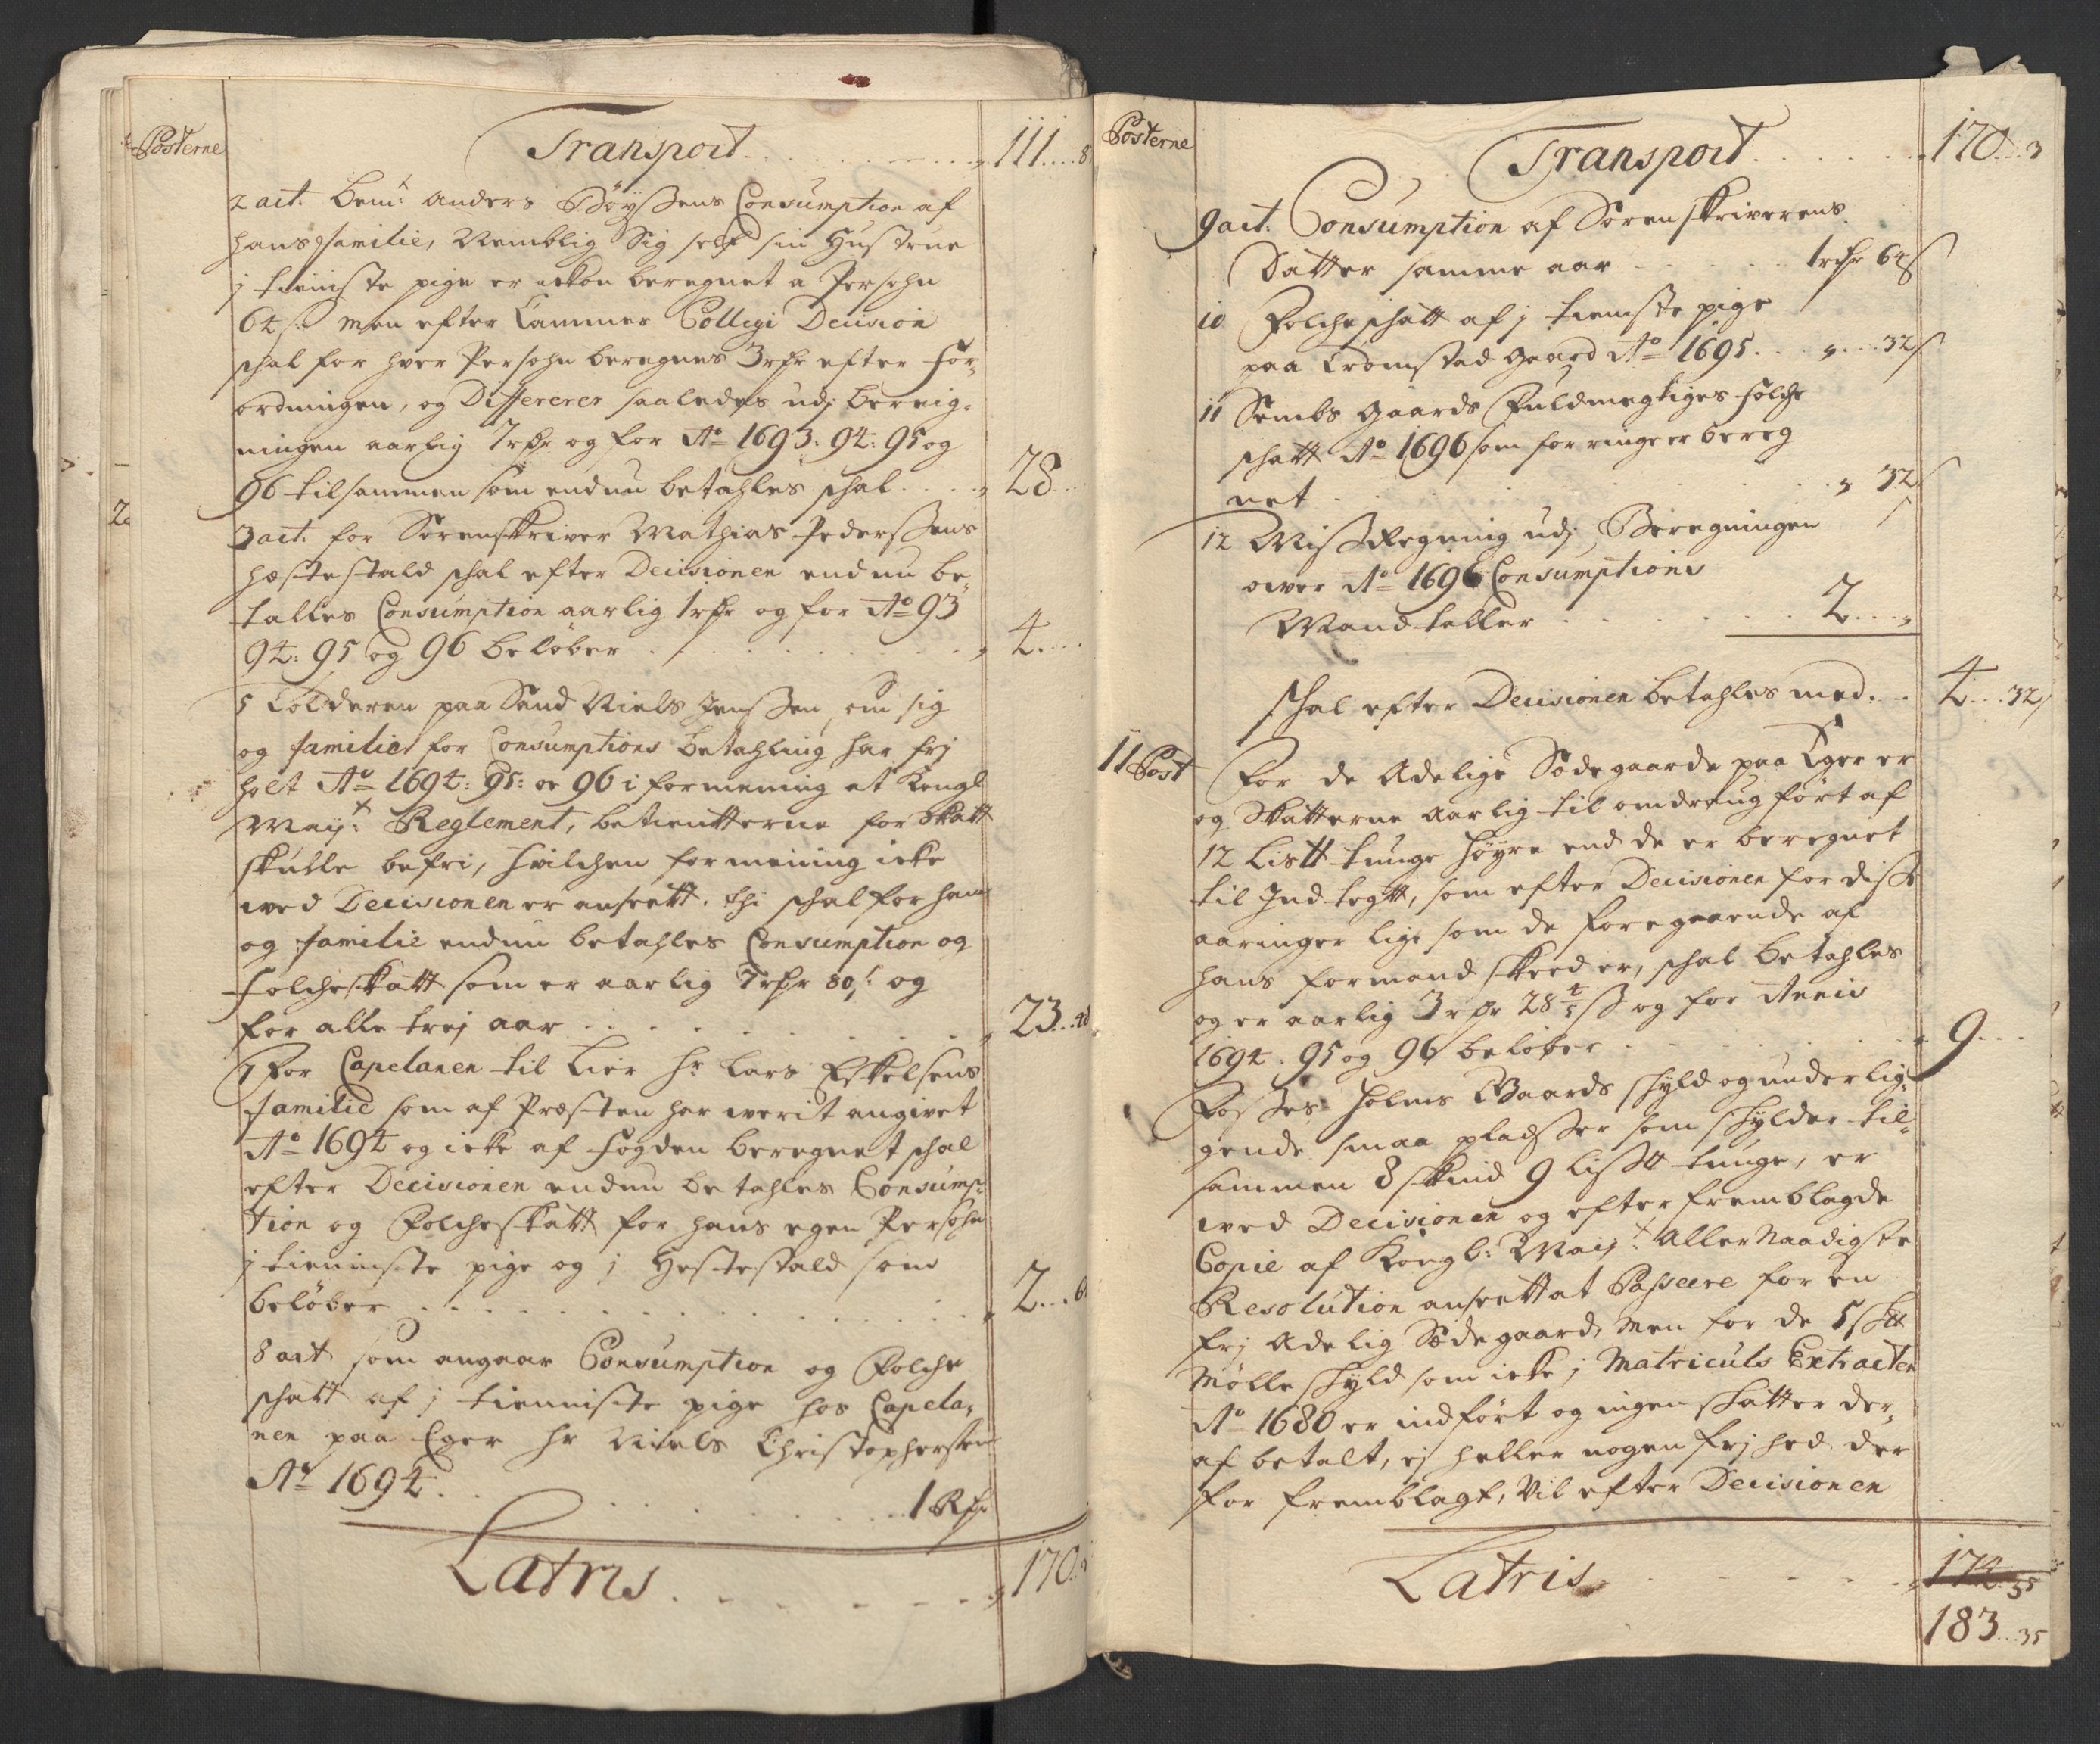 Posterne
Transport . . . . . . . . 111 . . 8
2 art: bem:t Anders Böyssens Consumption af
hans familie, Nemblig Sig self sin Hustrue
j tieniste pige er ickon beregnet a Persohn
64 s: men efter Cammer Collegi Decision
schal for hver Persohn beregnes 3 rdr efter For„
ordningen, og Differerer saaledes udj bereig„
ningen aarlig 7 rdr og for Ao 1693: 94: 95 og
96 tilsammen som endnu betahles schal . . . 28 . .
3 art: for Sorenskriver Mathias Pederssens
hæstestald schal efter Decisionen endnu be„
talles Consumption aarlig 1 rdr og for Ao 93
94: 95 og 96 beløber . . . . . . 4 . . .
5 Tolderen paa Sand Niels Jenssen om sig
og familie for Consumptions betahling har frj
holt Ao 1694: 95: oc 96 i formening at Kongl
May:t Reglement, betientterne for skatt
skulle befri, hvilchen formening icke
wed Decisionen er anseett. thi schal for ham
og familie endnu betahles Consumption og
Folcheskatt som er aarlig 7 rdr 80 s: og
for alle trej aar . . . . . . 23 . .
7 For Capelanen til Lier Hr Lars Eskelsens
familie som af Præsten har werit angivet
Ao 1694 og icke af fogden beregnet schal
efter Decisionen endnu betahles Consump„
tion og Folcheskatt for hans egen Persohn
j tienniste pige og j Hestestald som
beløber . . . . . . . . 2 . .
8 art som angaar Consumption og Folche
schatt af j tienniste pige hos Capela„
nen paa Eger Hr Niels Christophersen
Ao 1694 . . . . . . . 1 Rdr
Latris . . . . . . . 170 . .
Posterne
Transport . . . . . . . 170 . . 3
9 art: Consumption af Sorenskriverens
Datter samme aar . . . . . 1 rdr 64 s
10 Folcheschatt af j tienste pige
paa Cromstad Gaard Ao 1695 . . „ . . 32 s
11 Sembs Gaards Fuldmegtiges folche
schatt Ao 1696 som for ringe er bereg
net . . . . . . . . „ 32 s
12 Miss Regning udj Beregningen
ower Ao 1696 Consumptions
Mandtaller . . . . . . 2 . . „
schal efter Decisionen betahles med . . 4 . . 32
11 Post For de Adelige Sædegaarde paa Eger er
og Skatterne Aarlig til omdraug ført af
12 Listt tunge høyre end de er beregnet
til Indtegtt, som efter Decisionen for disse
aaringer lige som de foregaaende af
hans formand skeed er, schal betahles
og er aarlig 3 rdr 28 4/5 ss og for Annis
1694. 95 og 96 beløber . . . . . 9 . . .
Fosses Holms Gaards schyld og underlig„
gende smaa pladsser som schylder til„
sammen 8 skind 9 lisstt tunge, er
wed Decisionen og efter fremblagde
Copie af Kongl: May:t Aller Naadigste
Resolution anseett at Passere for en
frj Adelig Sædegaard, Men for de 5 sktt
Mølle schyld som icke j Matriculs Extracten
Ao 1680 er indført og ingen skatter der„
af betalt, ej heller nogen frjhed der
for fremblagt, vil efter Decisionen
Latris . . . . . . 174 . . 35
183 . . 35